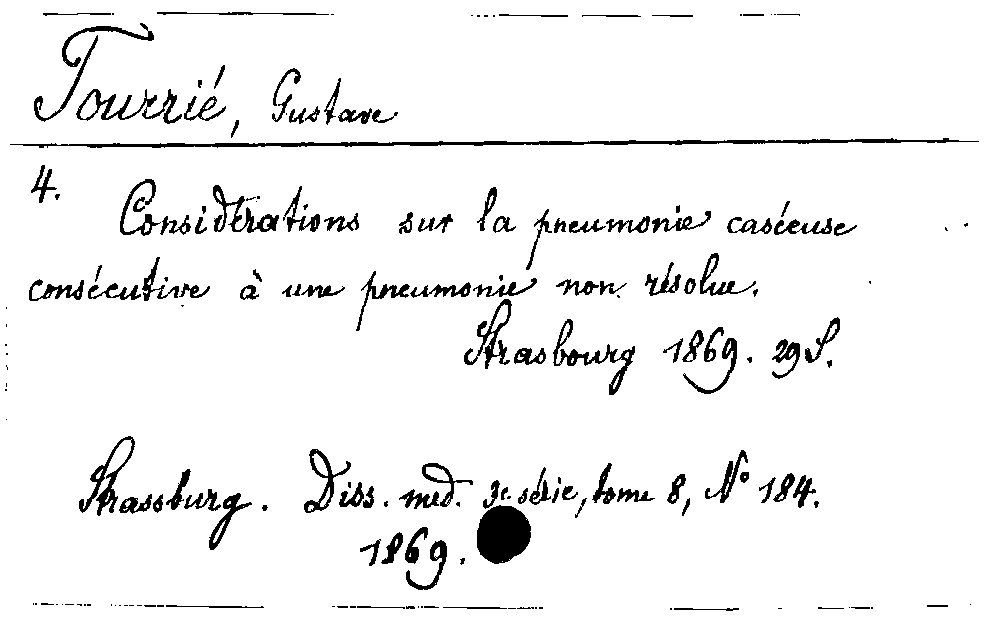 Tourrié, Gustave
4.
Considérations sur la pneumonie caséeuse
consécutive à une pneumonie non résolue.
Strasbourg 1869. 29 S.
Strassburg. Diss. med. 3e série, tome 8, No 184.
1869.